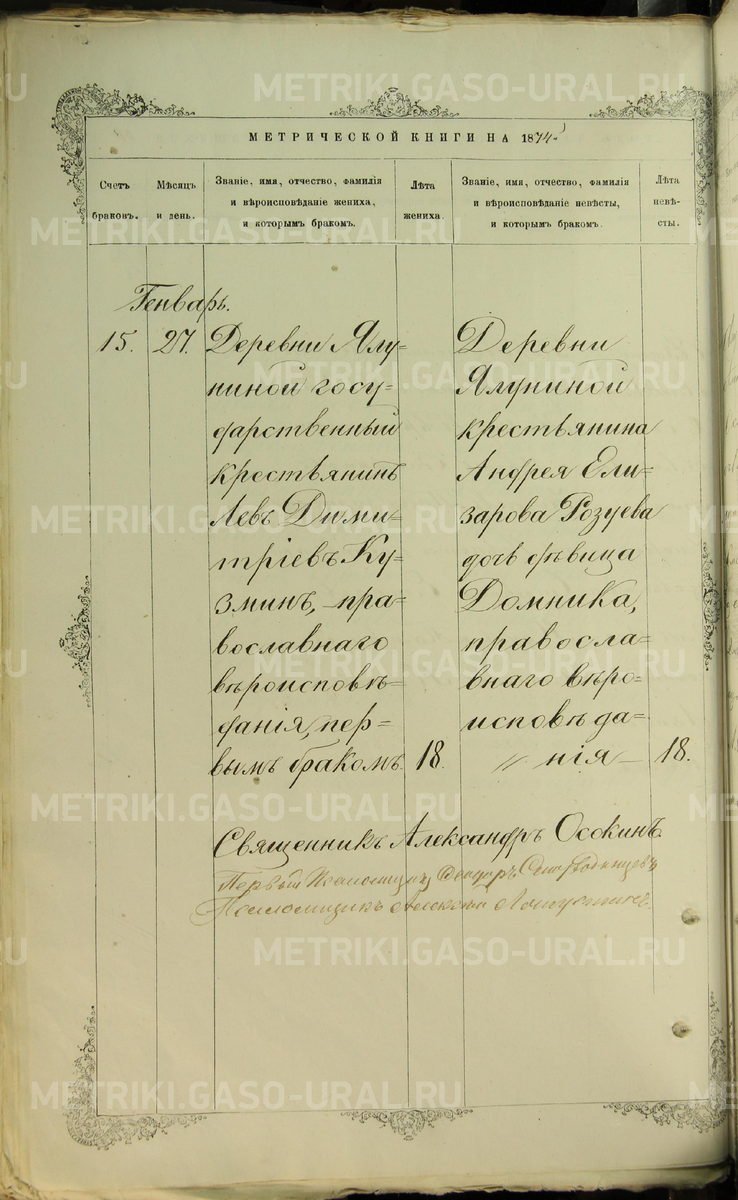 METRIKI.GASO-URAL.RU
МЕТРИЧЕСКОЙ КНИГИ НА 1874
Счетъ браковъ.
Мѣсяцъ и день.
Званіе, имя, отчество, фамилія и вѣроисповѣданіе жениха, и которымъ бракомъ.
Лѣта жениха.
Званіе, имя, отчество, фамилія и вѣроисповѣданіе невѣсты, и которымъ бракомъ.
Лѣта невѣсты.
Генварь.
15.
27.
Деревни Ялу-
ниной госу-
дарственный
крестьянинъ
Левъ Дими-
тріевъ Ку-
зминъ, пра-
вославнаго
вѣроисповѣ-
данія, пер-
вымъ бракомъ.
18.
Деревни
Ялуниной
крестьянина
Андрея Ели-
зарова Розуева
дочь дѣвица
Домника,
правосла-
внаго вѣро-
исповѣда-
" нія —
18.
Священникъ Александръ Осокинъ.
Первый Псаломщикъ
Псаломщикъ Алексѣй